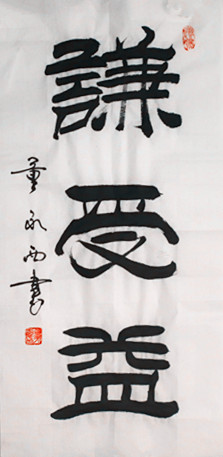 謙受益
董永西書